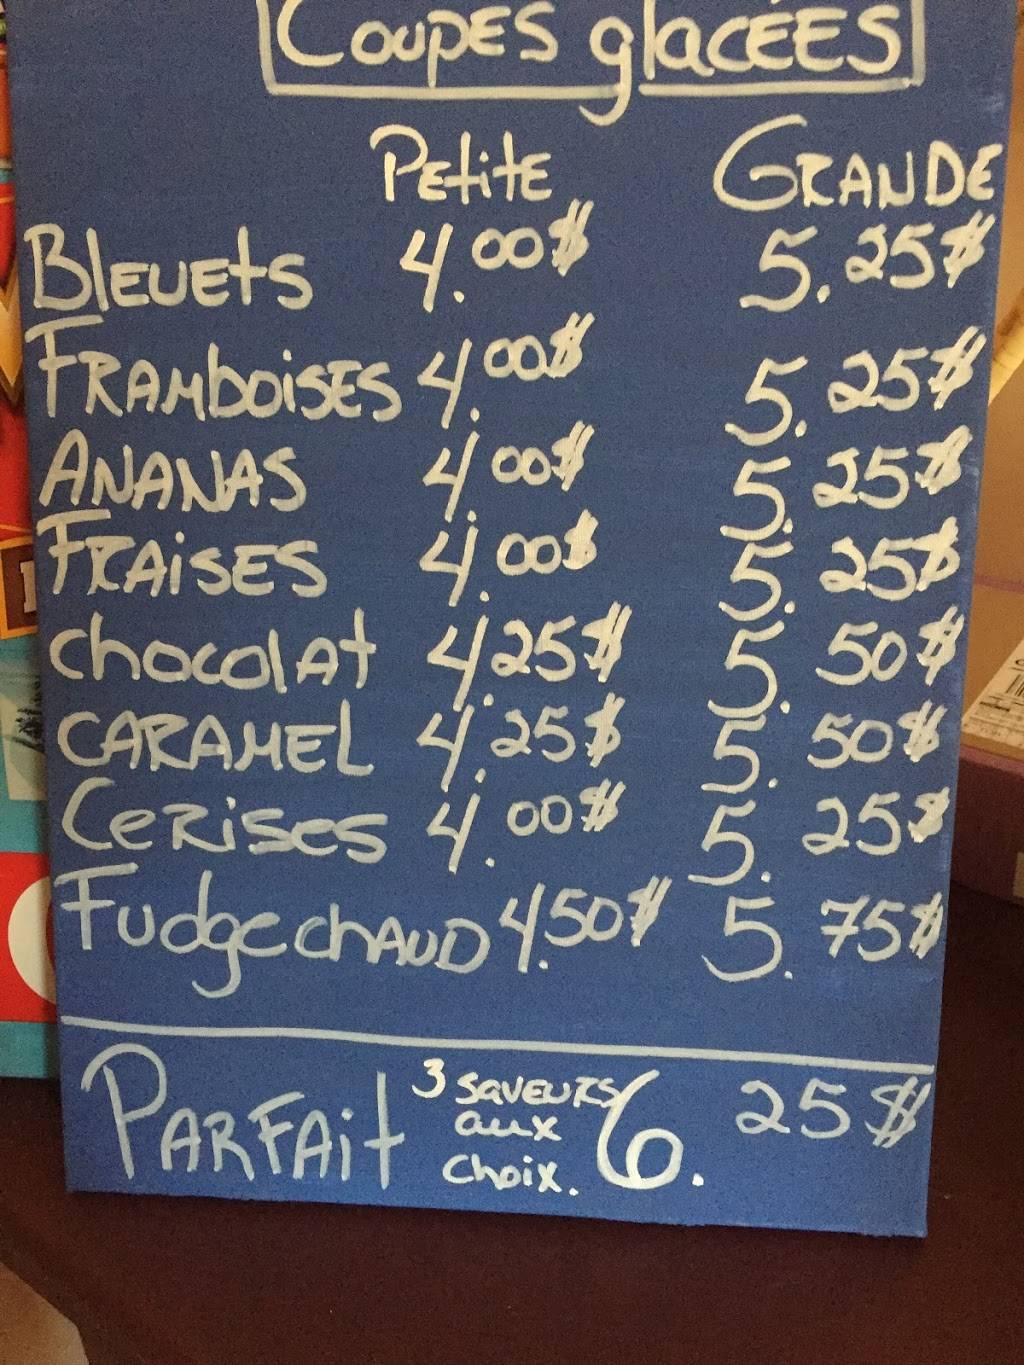 Coupes glacées
Petite Grande
Bleuets 4.00$ 5.25$
Framboises 4.00$ 5.25$
Ananas 4.00$ 5.25$
Fraises 4.00$ 5.25$
chocolat 4.25$ 5.50$
Caramel 4.25$ 5.50$
Cerises 4.00$ 5.25$
Fudge chaud 4.50$ 5.75$
Parfait 3 saveurs aux choix. 6.25$